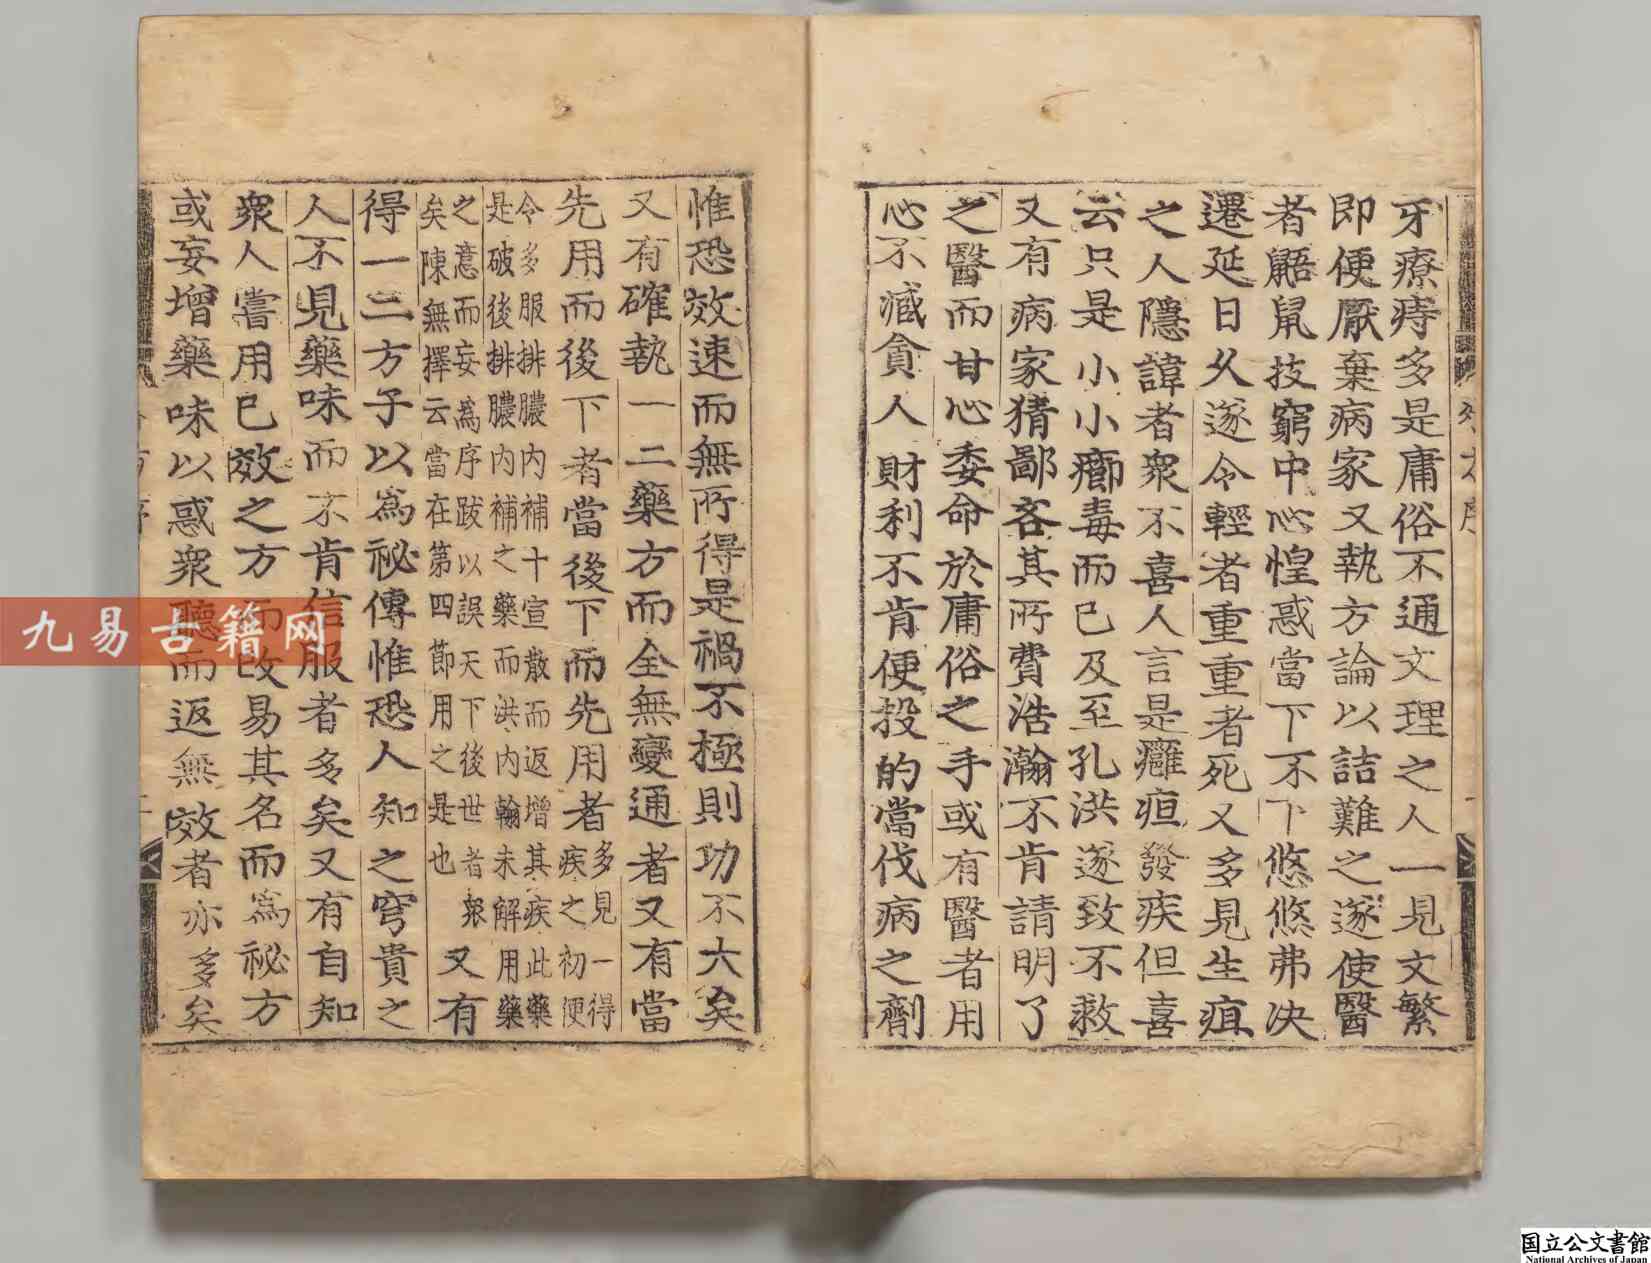 牙療痔多是庸俗不通文理之人一見文繁
即便厭棄病家又執方論以詰難之遂使醫
者鼯鼠技窮中心惶惑當下不下悠悠弗決
遷延日久遂令輕者重重者死又多見生疽
之人隱諱者衆不喜人言是癰疽發疾但喜
云只是小小癤毒而已及至孔洪遂致不救
又有病家猜鄙吝其所費浩瀚不肯請明了
之醫而甘心委命於庸俗之手或有醫者用
心不臧貪人財利不肯便投的當伐病之劑
惟恐效速而無所得是禍不極則功不大矣
又有確執一二藥方而全無變通者又有當
先用而後下者當後下而先用者多見一得疾之初便
令多服排膿内補十宣散而返增其疾此藥
是破後排膿内補之藥而洪内翰未解用藥
之意而妄爲序跋以誤天下後世者衆
矣陳無擇云當在第四節用之是也又有
得一二方子以爲祕傳惟恐人知之穹貴之
人不見藥味而不肯信服者多矣又有自知
衆人嘗用已效之方而改易其名而爲祕方
或妄增藥味以惑衆聽而返無效者亦多矣
九易古籍网
国立公文書館
National Archives of Japan